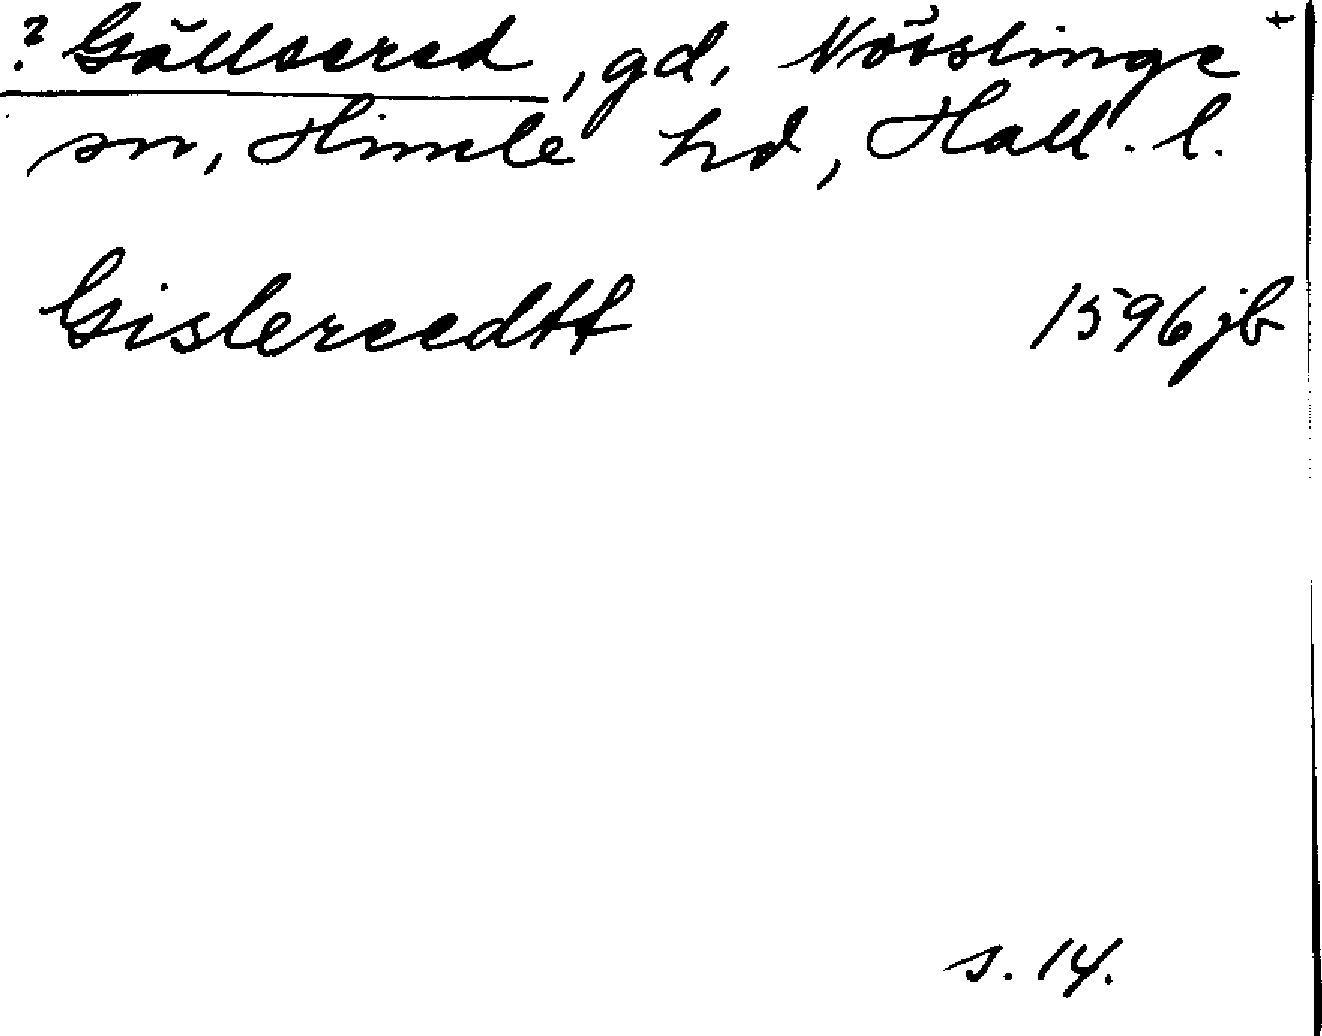 ? Gällsered, gd, Nösslinge +
sn, Himle hd, Hall. l.
Gislereedtt 1596 jb
s. 14.